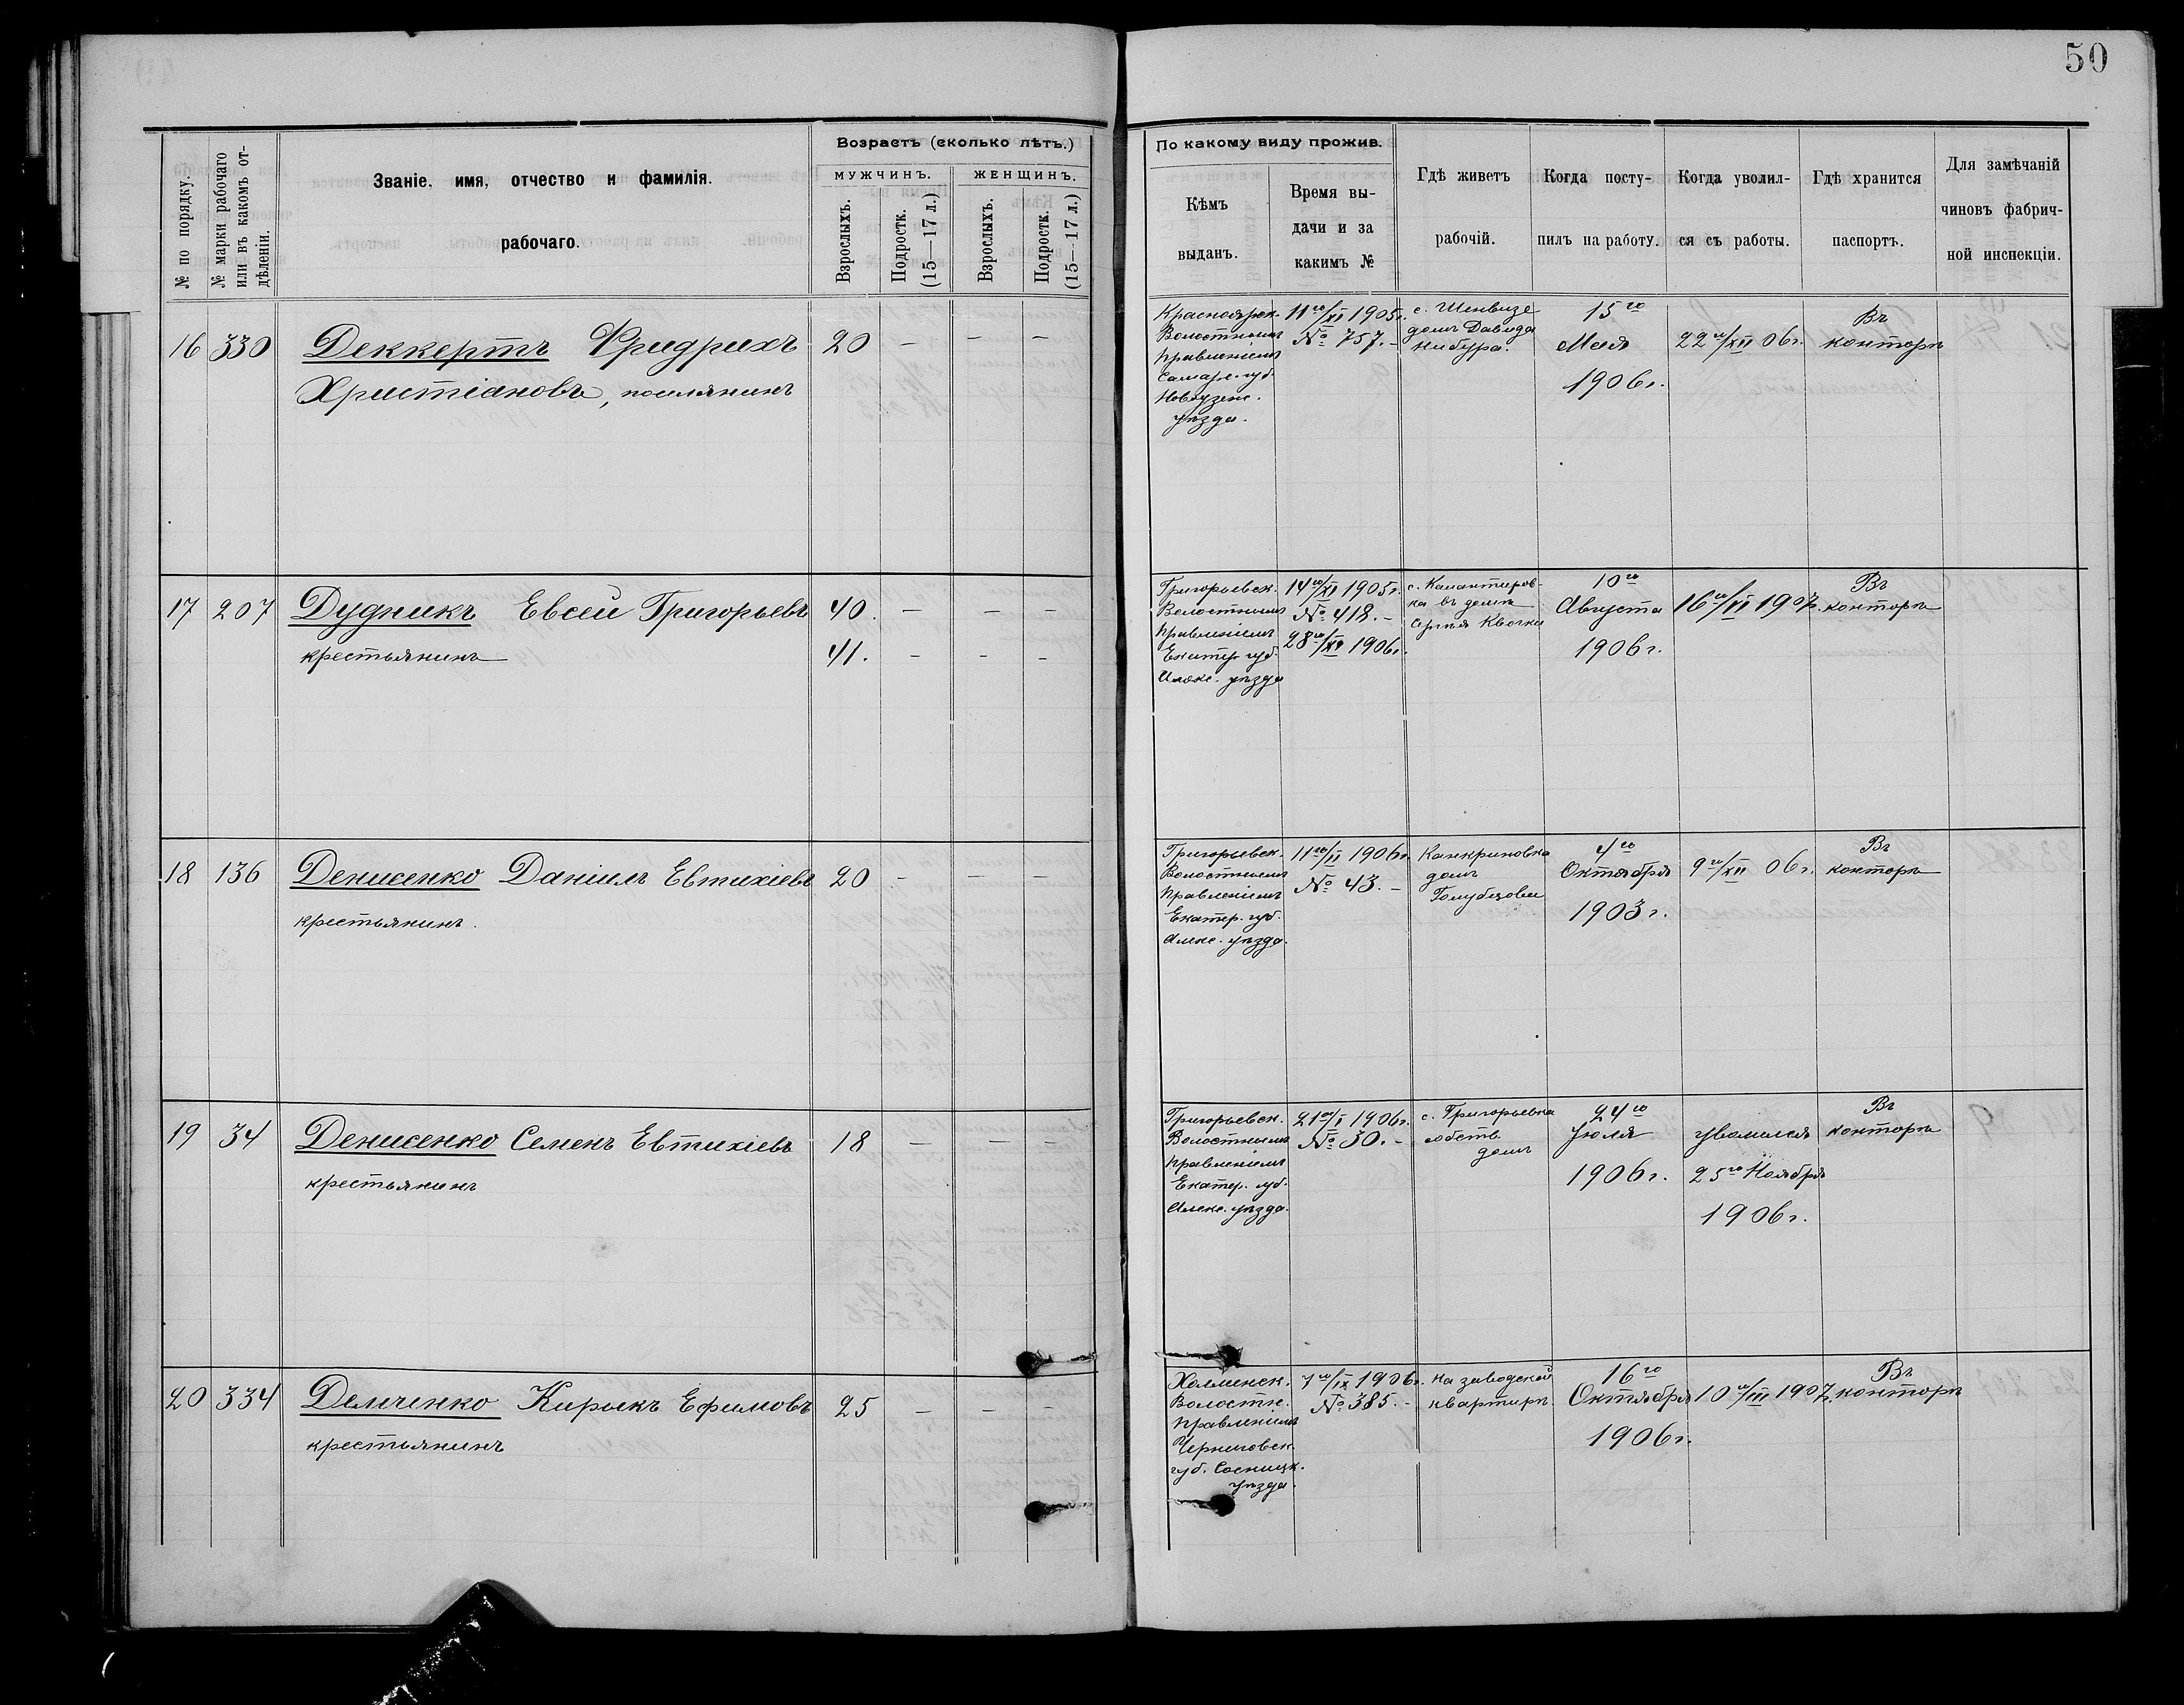 50
№ по порядку.
№ марки рабочаго
или въ какомъ от-
дѣленіи.
Званіе, имя, отчество и фамилія.
рабочаго.
Возрастъ (сколько лѣтъ.)
МУЖЧИНЪ.
ЖЕНЩИНЪ.
Взрослыхъ.
Подростк.
(15—17 л.)
Взрослыхъ.
Подростк.
(15—17 л.)
По какому виду прожив.
Кѣмъ
выданъ.
Время вы-
дачи и за
какимъ №
Гдѣ живетъ
рабочій.
Когда посту-
пилъ на работу.
Когда уволил-
ся съ работы.
Гдѣ хранится
паспортъ.
Для замѣчаній
чиновъ фабрич-
ной инспекціи.
16 330 Деккертъ Фридрихъ 20 — — —
Христіановъ, поселянинъ
Красноярск.
Волостнымъ
правленіемъ
Самарс. губ.
Новоузенс.
уѣзда.
11го/XI 1905г.
№ 757.-
с. Шенвизе
домъ Давида
Нибура.
15го
Мая
1906г.
22го/XII 06г.
Въ
конторѣ
17 207 Дудникъ Евсей Григорьевъ 40. — — —
крестьянинъ 41. - - -
Григорьевск.
Волостнымъ
правленіемъ
Екатер. губ.
Алекс. уѣзда
14го/XI 1905г.
№ 418.-
28го/XI 1906г.
с. Кантиров-
ка въ домѣ
10го
Августа
1906г.
16го/VI 1907г.
Въ
конторѣ
18 136 Денисенко Даніилъ Евтихіевъ 20 - — —
крестьянинъ.
Григорьевск.
Волостнымъ
правленіемъ
Екатер. губ.
Алекс. уѣзда.
11го/II 1906г.
№ 43.-
Канкриновка
домъ
Голубцовы
4го
Октября
1903г.
9го/XII 06г.
Въ
конторѣ
19 34 Денисенко Семенъ Евтихіевъ 18 — — —
крестьянинъ
Григорьевск.
Волостнымъ
правленіемъ
Екатер. губ.
Алекс. уѣзда.
21го/I 1906г.
№ 30.-
с. Григорьевка
собств.
домъ
24го
Іюля
1906г.
уволился
25го Ноября
1906г.
Въ
конторѣ
20 334 Демченко Кирыкъ Ефимовъ 25 — — -
крестьянинъ
Холменск.
Волостн.
правленіемъ
Черниговск.
губ. Сосницк.
уѣзда.
7го/IX 1906г.
№ 385.-
на заводской
квартирѣ
16го
Октября
1906г.
10го/III 1907г.
Въ
конторѣ